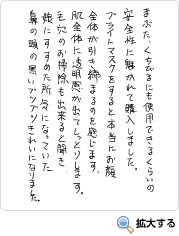 まぶた、くちびるにも使用できるくらいの
安全性に魅かれて購入しました。
ブライトマスクをすると本当にお顔
全体が引き締まるのを感じます。
肌全体に透明感が出てしっとりします。
毛穴のお掃除も出来ると聞き、
娘にすすめた所気になっていた
鼻の頭の黒いブツブツきれいになりました。
拡大する